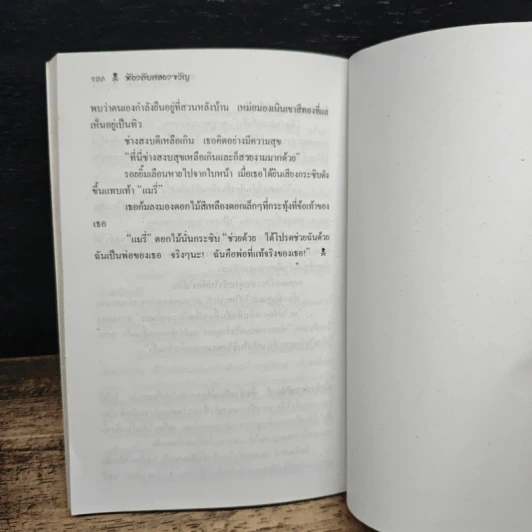 ห้องลับสยองขวัญ
พบว่าตนเองกำลังยืนอยู่ที่สวนหลังบ้าน เหม่อมองเนินเขาสีทองที่แล
เห็นอยู่เป็นทิว
ช่างสงบดีเหลือเกิน เธอคิดอย่างมีความสุข
“ที่นี่ช่างสงบสุขเหลือเกินและก็สวยงามมากด้วย”
รอยยิ้มเลือนหายไปจากใบหน้า เมื่อเธอได้ยินเสียงกระซิบดัง
ขึ้นแทบเท้า “แมรี่”
เธอก้มลงมองดอกไม้สีเหลืองดอกเล็กๆที่กระทุ้งที่ข้อเท้าของ
เธอ
“แมรี่” ดอกไม้นั่นกระซิบ “ช่วยด้วย ได้โปรดช่วยฉันด้วย
ฉันเป็นพ่อของเธอ จริงๆนะ! ฉันคือพ่อที่แท้จริงของเธอ!”